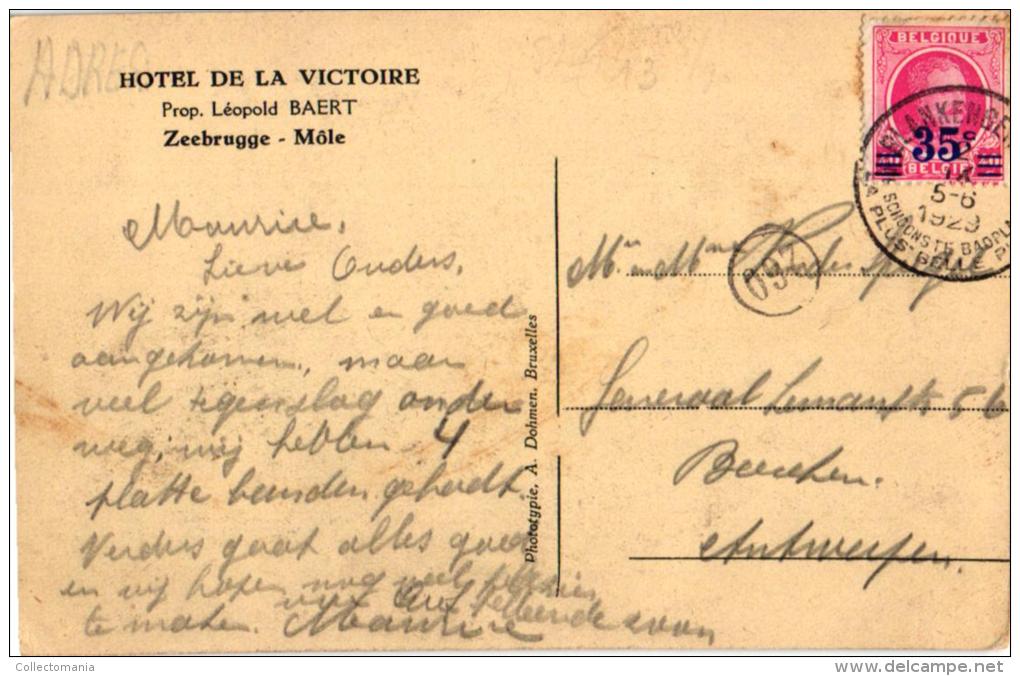 ADRES
HOTEL DE LA VICTOIRE
Prop. Léopold BAERT
Zeebrugge - Môle
BELGIQUE
35c
BELGIË
BLANKENBE
12
IX
5-6
1929
SCHOONSTE BADPLA
LA PLUS BELLE PL
Maurice.
Lieve Ouders.
Wij zijn wel en goed
aangekomen, maar
veel tegenslag onder
weg, wij hebben 4
platte banden gehadt.
Verders gaat alles goed
en wij hopen nog veel plezier
te maken.
uw liefhebbende zoon
Maurice
Phototypie, A. Dohmen, Bruxelles
Mr en Mme
093
Generaal Lemanstr 56
Berchem.
Antwerpen.
Collectomania
delcampe.net